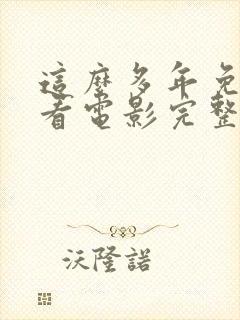 這麼多年免
看電影完整
沃隆諾